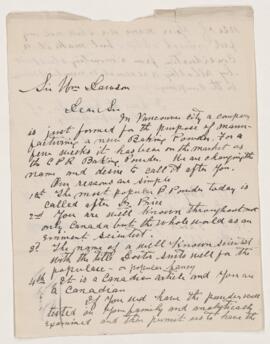 Sir Wm Dawson
Dear Sir
In Vancouver city a company
is just formed for the purpose of manu-
facturing a new Baking Powder. For a
few weeks it has been on the market as
the C.P.R. Baking Powder. We are changing the
name and desire to call it after you.
Our reasons are simple
1st The most popular B. Powder today is
called after Dr Price
2nd You are well known throughout not
only Canada but the whole world as an
eminent scientist
3d The name of a well known scientist
with the title Doctor suits well for the
populace - or popular fancy
4th It is a Canadian article and you are
a Canadian
If you will have the powder well
tested in your family and analytically
examined and then permit us to have the